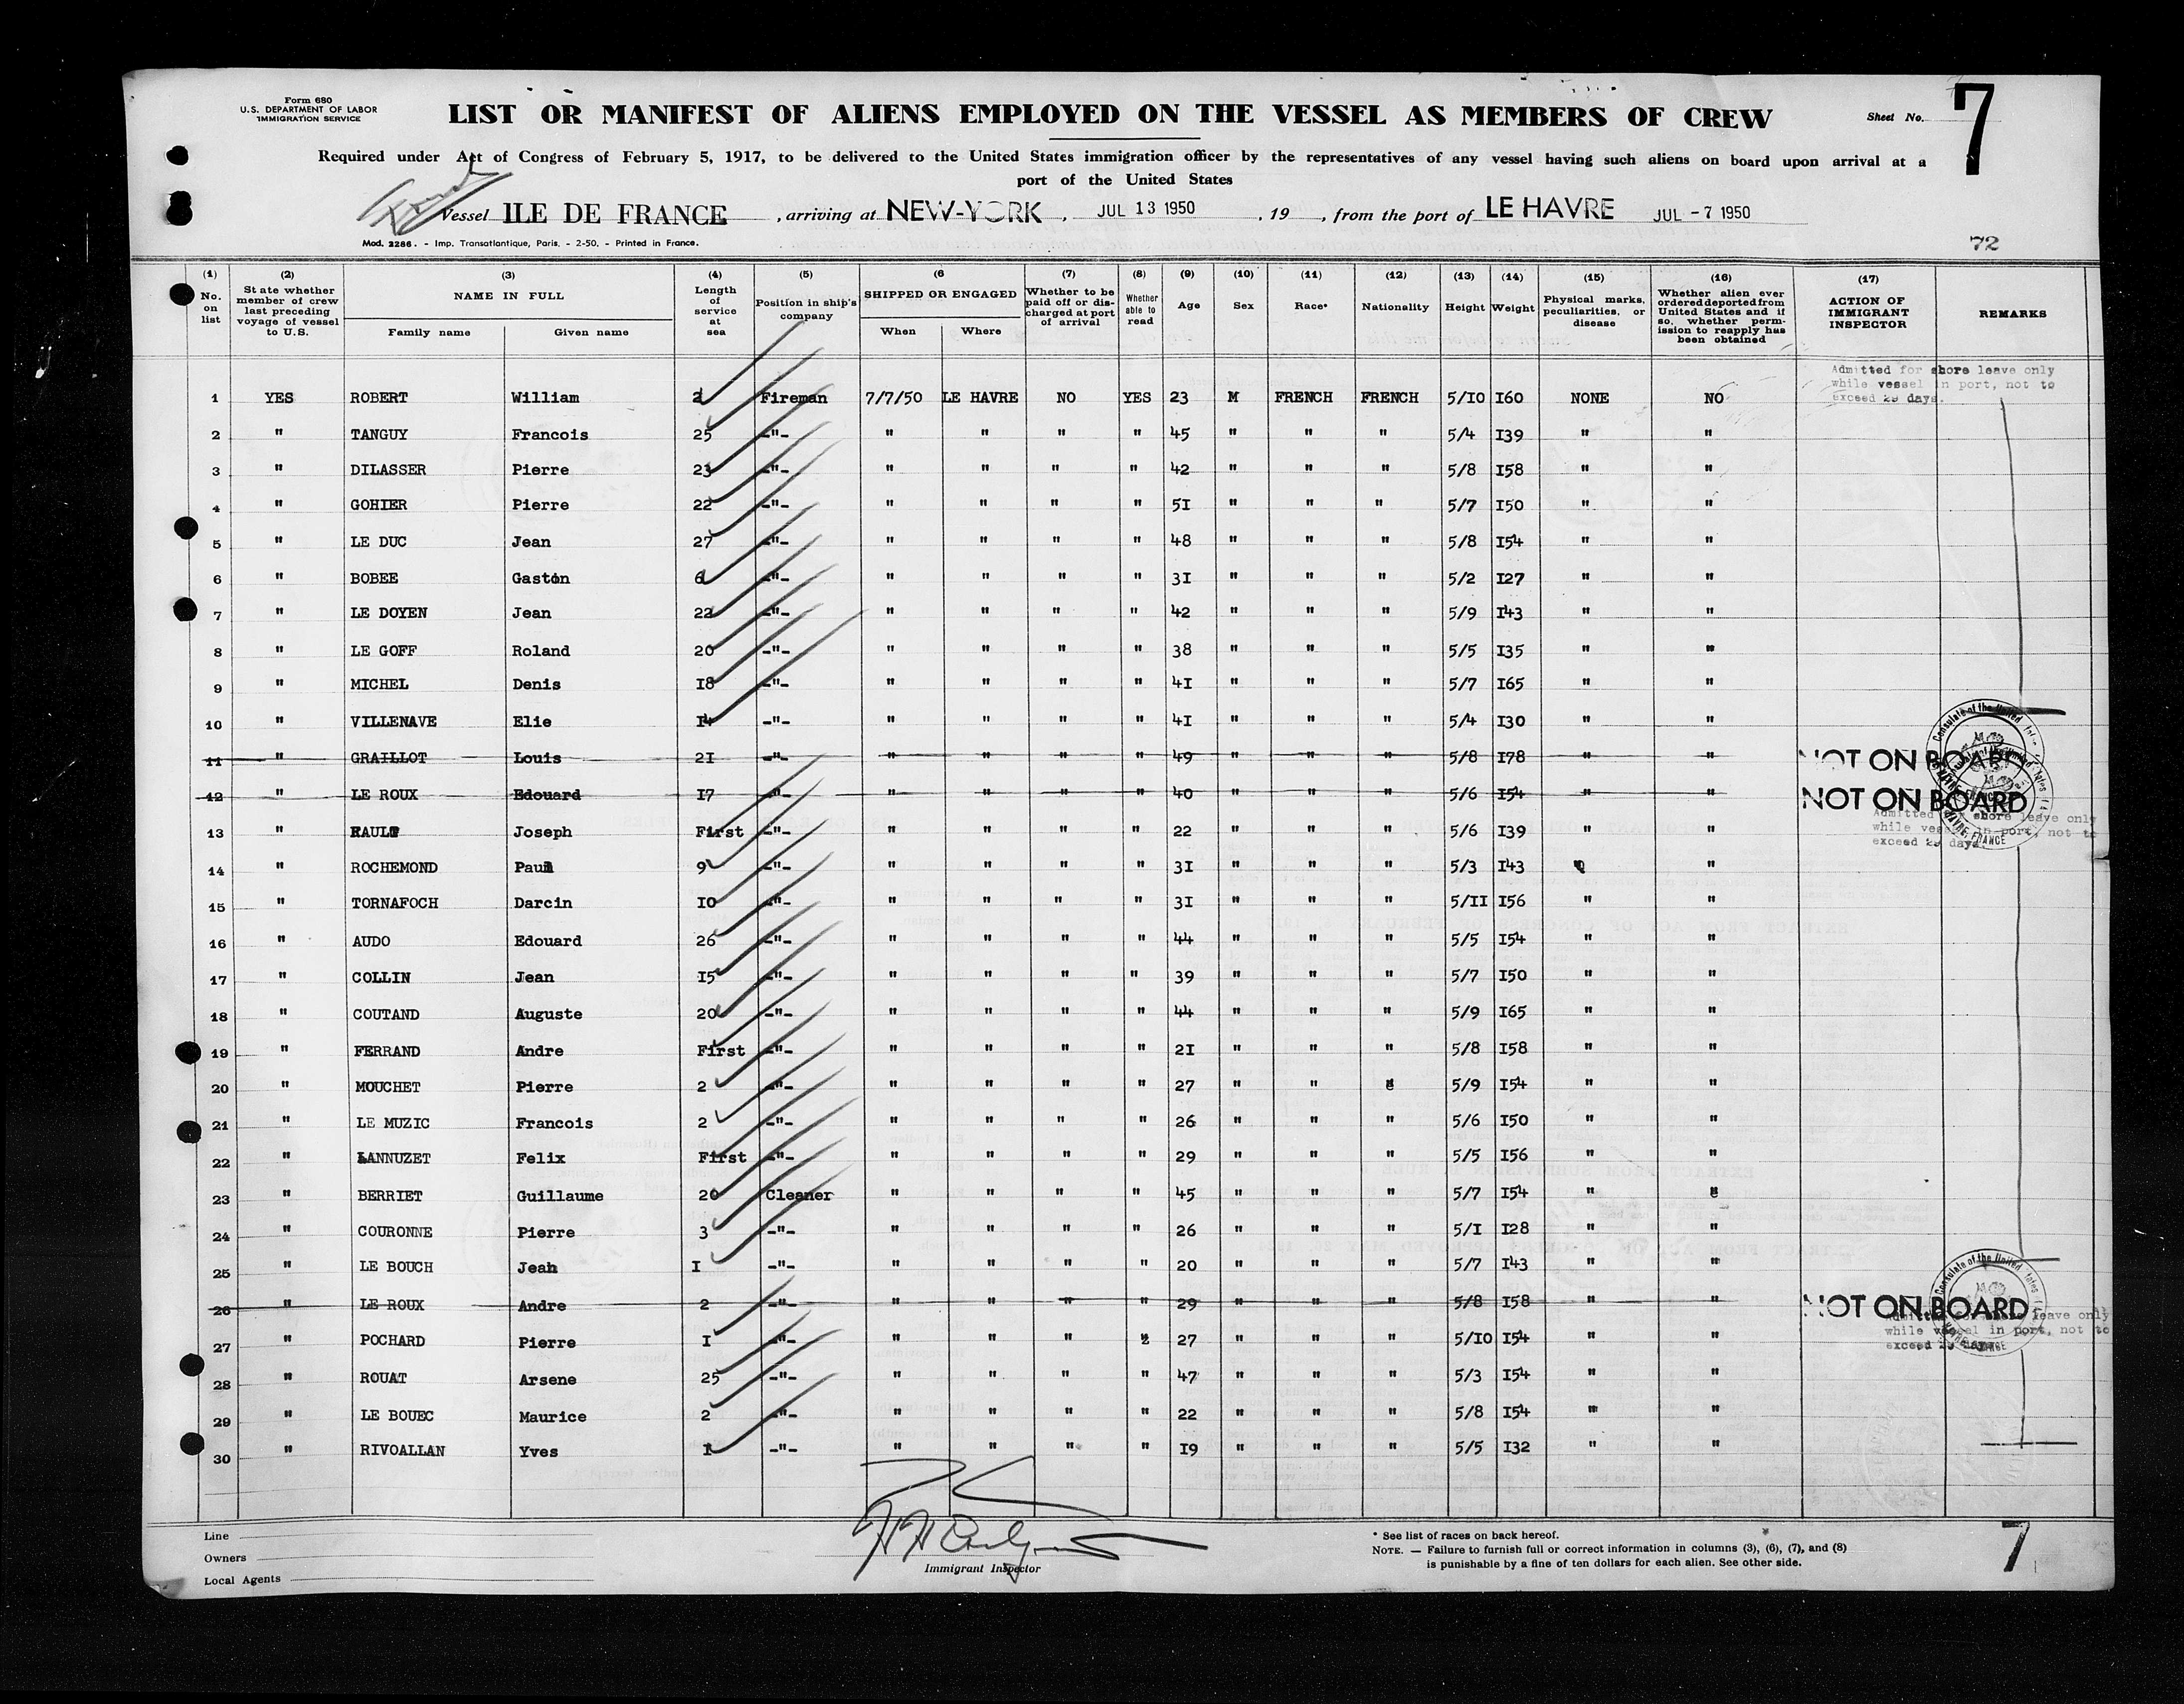 Form 680
U.S. DEPARTMENT OF LABOR
IMMIGRATION SERVICE
LIST OR MANIFEST OF ALIENS EMPLOYED ON THE VESSEL AS MEMBERS OF CREW
Sheet No. 7
Required under Act of Congress of February 5, 1917, to be delivered to the United States immigration officer by the representatives of any vessel having such aliens on board upon arrival at a
port of the United States
Vessel ILE DE FRANCE , arriving at NEW-YORK , JUL 13 1950 , 19 , from the port of LE HAVRE JUL -7 1950
Mod. 2286. - Imp. Transatlantique, Paris. - 2-50. - Printed in France.
72
(1) No. on list
(2) State whether member of crew last preceding voyage of vessel to U.S.
(3) NAME IN FULL Family name Given name
(4) Length of service at sea
(5) Position in ship's company
(6 SHIPPED OR ENGAGED When Where
(7) Whether to be paid off or discharged at port of arrival
(8) Whether able to read
(9) Age
(10) Sex
(11) Race*
(12) Nationality
(13) Height
(14) Weight
(15) Physical marks, peculiarities, or disease
(16) Whether alien ever ordered deported from United States and if so, whether permission to reapply has been obtained
(17) ACTION OF IMMIGRANT INSPECTOR
REMARKS
Admitted for shore leave only
while vessel in port, not to
exceed 29 days.
1 YES ROBERT William 2 Fireman 7/7/50 LE HAVRE NO YES 23 M FRENCH FRENCH 5/10 160 NONE NO
2 " TANGUY Francois 25 -"- " " " " 45 " " " 5/4 139 " "
3 " DILASSER Pierre 23 -"- " " " " 42 " " " 5/8 158 " "
4 " GOHIER Pierre 22 -"- " " " " 51 " " " 5/7 150 " "
5 " LE DUC Jean 27 -"- " " " " 48 " " " 5/8 154 " "
6 " BOBEE Gaston 6 -"- " " " " 31 " " " 5/2 127 " "
7 " LE DOYEN Jean 22 -"- " " " " 42 " " " 5/9 143 " "
8 " LE GOFF Roland 20 -"- " " " " 38 " " " 5/5 135 " "
9 " MICHEL Denis 18 -"- " " " " 41 " " " 5/7 165 " "
10 " VILLENAVE Elie 14 -"- " " " " 41 " " " 5/4 130 " "
11 " GRAILLOT Louis 21 -"- " " " " 49 " " " 5/8 178 " " NOT ON BOARD
12 " LE ROUX Edouard 17 -"- " " " " 40 " " " 5/6 154 " " NOT ON BOARD
Admitted shore leave only
while vessel in port, not to
exceed 29 days
13 " RAULT Joseph First -"- " " " " 22 " " " 5/6 139 " "
14 " ROCHEMOND Paul 9 -"- " " " " 31 " " " 5/3 143 "
15 " TORNAFOCH Darcin 10 -"- " " " " 31 " " " 5/11 156 " "
16 " AUDO Edouard 26 -"- " " " " 44 " " " 5/5 154 " "
17 " COLLIN Jean 15 -"- " " " " 39 " " " 5/7 150 " "
18 " COUTAND Auguste 20 -"- " " " " 44 " " " 5/9 165 " "
19 " FERRAND Andre First -"- " " " " 21 " " " 5/8 158 " "
20 " MOUCHET Pierre 2 -"- " " " " 27 " " 5/9 154 " "
21 " LE MUZIC Francois 2 -"- " " " " 26 " " " 5/6 150 " "
22 " LANNUZET Felix First -"- " " " " 29 " " " 5/5 156 " "
23 " BERRIET Guillaume 20 Cleaner " " " " 45 " " " 5/7 154 "
24 " COURONNE Pierre 3 -"- " " " " 26 " " " 5/1 128 " "
25 " LE BOUCH Jean 1 -"- " " " " 20 " " " 5/7 143 " "
26 " LE ROUX Andre 2 -"- " " " " 29 " " " 5/8 158 " " NOT ON BOARD
leave only
while vessel in port, not to
exceed 29 days
27 " POCHARD Pierre 1 -"- " " " 27 " " " 5/10 154 " "
28 " ROUAT Arsene 25 -"- " " " " 47 " " " 5/3 154 " "
29 " LE BOUEC Maurice 2 -"- " " " " 22 " " " 5/8 154 " "
30 " RIVOALLAN Yves 1 -"- " " " " 19 " " " 5/5 132 " "
Consulate of the United States
HAVRE, FRANCE
Consulate of the United States
Line
Owners
Local Agents
Immigrant Inspector
* See list of races on back hereof.
NOTE. — Failure to furnish full or correct information in columns (3), (6), (7), and (8)
is punishable by a fine of ten dollars for each alien. See other side.
7